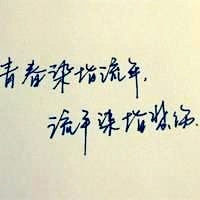 青春染指流年，
流年染指伤.